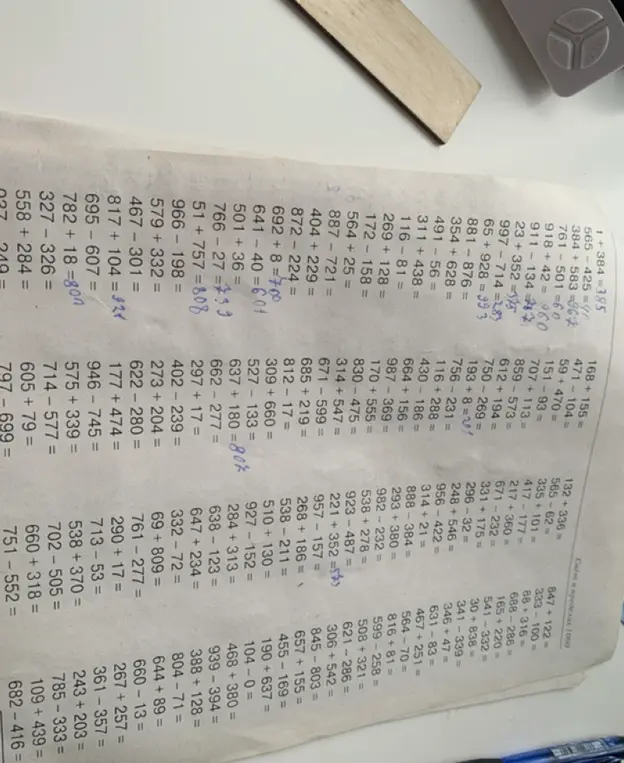 Счёт в пределах 1000
1 + 384 = 385
565 − 425 =
384 + 583 = 967
761 − 501 =
918 + 42 = 960
911 − 134 =
23 + 352 = 375
997 − 714 = 283
65 + 928 = 993
881 − 876 =
354 + 628 =
491 − 56 =
311 + 438 =
116 − 81 =
269 + 128 =
172 − 158 =
564 + 25 =
887 − 721 =
404 + 229 =
872 − 224 =
692 + 8 = 700
641 − 40 = 601
501 + 36 =
766 − 27 = 739
51 + 757 = 808
966 − 198 =
579 + 332 =
467 − 301 =
817 + 104 = 921
695 − 607 =
782 + 18 = 800
327 − 326 =
558 + 284 =
168 + 155 =
471 + 104 =
59 + 470 =
151 − 93 =
707 + 113 =
859 − 573 =
612 + 194 =
750 − 269 =
193 + 8 = 201
756 − 231 =
116 + 288 =
430 − 186 =
664 + 156 =
987 − 369 =
170 + 555 =
830 − 475 =
314 + 547 =
671 − 599 =
685 + 219 =
812 − 17 =
309 + 660 =
527 − 133 =
637 + 180 = 807
662 − 277 =
297 + 17 =
402 − 239 =
273 + 204 =
622 − 280 =
177 + 474 =
946 − 745 =
575 + 339 =
714 − 577 =
605 + 79 =
797 − 699 =
132 + 336 =
565 − 62 =
335 + 101 =
417 − 177 =
217 + 360 =
671 − 232 =
331 + 175 =
296 − 32 =
248 + 546 =
956 − 422 =
314 + 21 =
888 − 384 =
293 + 380 =
982 − 232 =
538 + 278 =
923 − 487 =
221 + 352 = 573
957 − 157 =
268 + 186 =
538 − 211 =
510 + 130 =
927 − 152 =
284 + 313 =
638 − 123 =
647 + 234 =
332 − 72 =
69 + 809 =
761 − 277 =
290 + 17 =
713 − 53 =
538 + 370 =
702 − 505 =
660 + 318 =
751 − 552 =
847 + 122 =
333 − 100 =
88 + 316 =
688 − 286 =
165 + 220 =
541 − 332 =
30 + 838 =
341 − 339 =
346 + 47 =
631 − 83 =
467 + 251 =
564 − 70 =
816 + 81 =
599 − 258 =
508 + 321 =
621 − 286 =
306 + 542 =
845 − 803 =
657 + 155 =
455 − 169 =
190 + 637 =
104 − 0 =
468 + 380 =
939 − 394 =
388 + 128 =
804 − 71 =
644 + 89 =
660 − 13 =
267 + 257 =
361 − 357 =
243 + 203 =
785 − 333 =
109 + 439 =
682 − 416 =